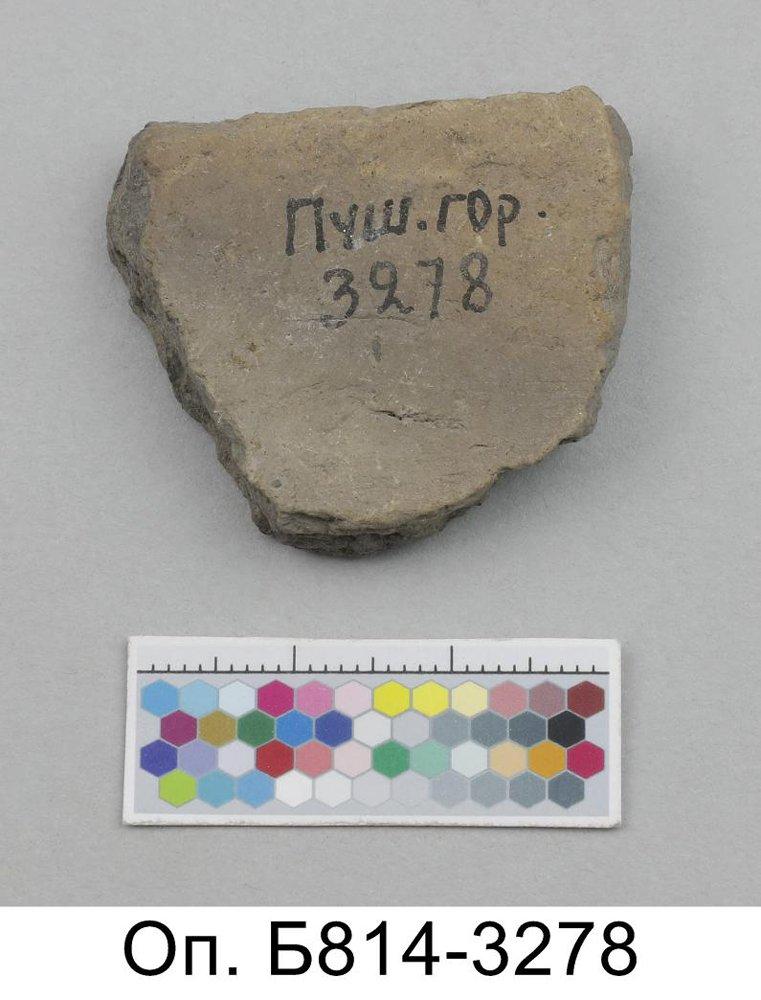 Пуш.гор.
3278
Оп. Б814-3278